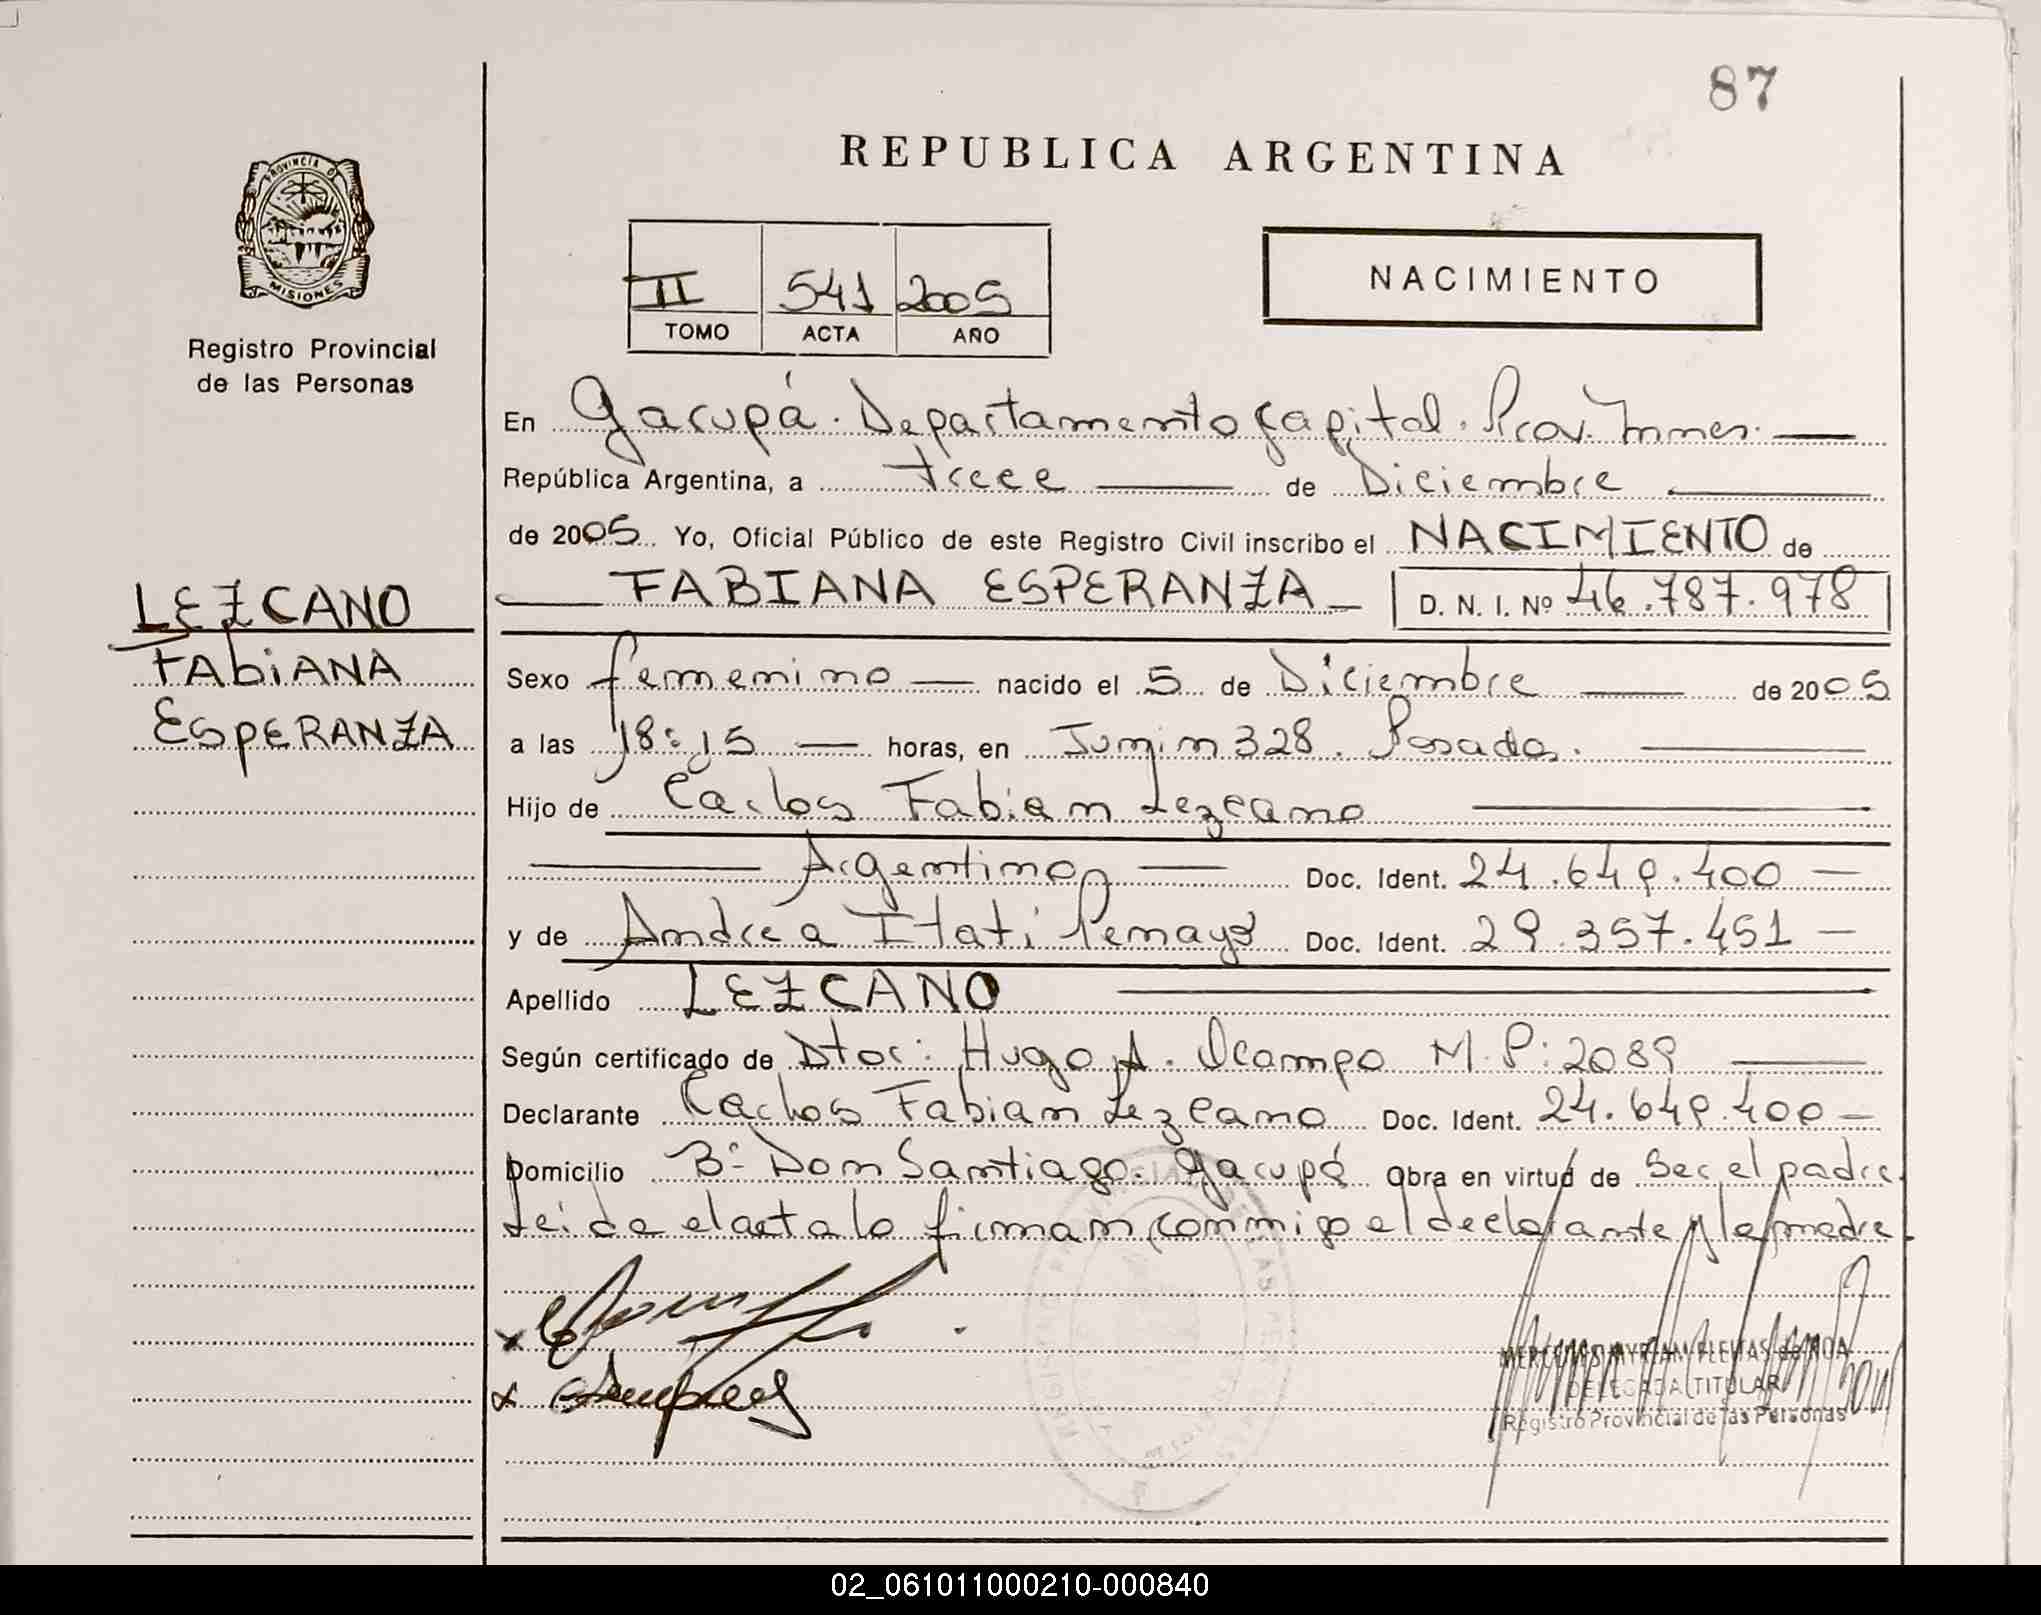 87
REPUBLICA ARGENTINA
PROVINCIA DE
MISIONES
Registro Provincial
de las Personas
II 541 2005
TOMO ACTA AÑO
NACIMIENTO
En Garupá. Departamento Capital. Prov. Mnes.
República Argentina, a trece de Diciembre
de 2005 Yo, Oficial Público de este Registro Civil inscribo el NACIMIENTO de
FABIANA ESPERANZA D. N. I. Nº 46.787.978
LEZCANO
FABiANA
ESPERANZA
Sexo femenino nacido el 5 de Diciembre de 2005
a las 18:15 horas, en Junin 328. Posadas.
Hijo de Carlos Fabian Lezcano
Argentino Doc. Ident. 24.649.400
y de Andrea Itati Penayo Doc. Ident. 29.357.451
Apellido LEZCANO
Según certificado de Dtor: Hugo A. Ocampo M.P: 2089
Declarante Carlos Fabian Lezcano Doc. Ident. 24.649.400
Domicilio Bº Don Santiago. Garupá Obra en virtud de Ser el padre
Leida el acta lo firman conmigo el declarante y la madre.
MERCEDES MYRIAM FLEITAS de RODA
DELEGADA TITULAR
Registro Provincial de las Personas
02_061011000210-000840